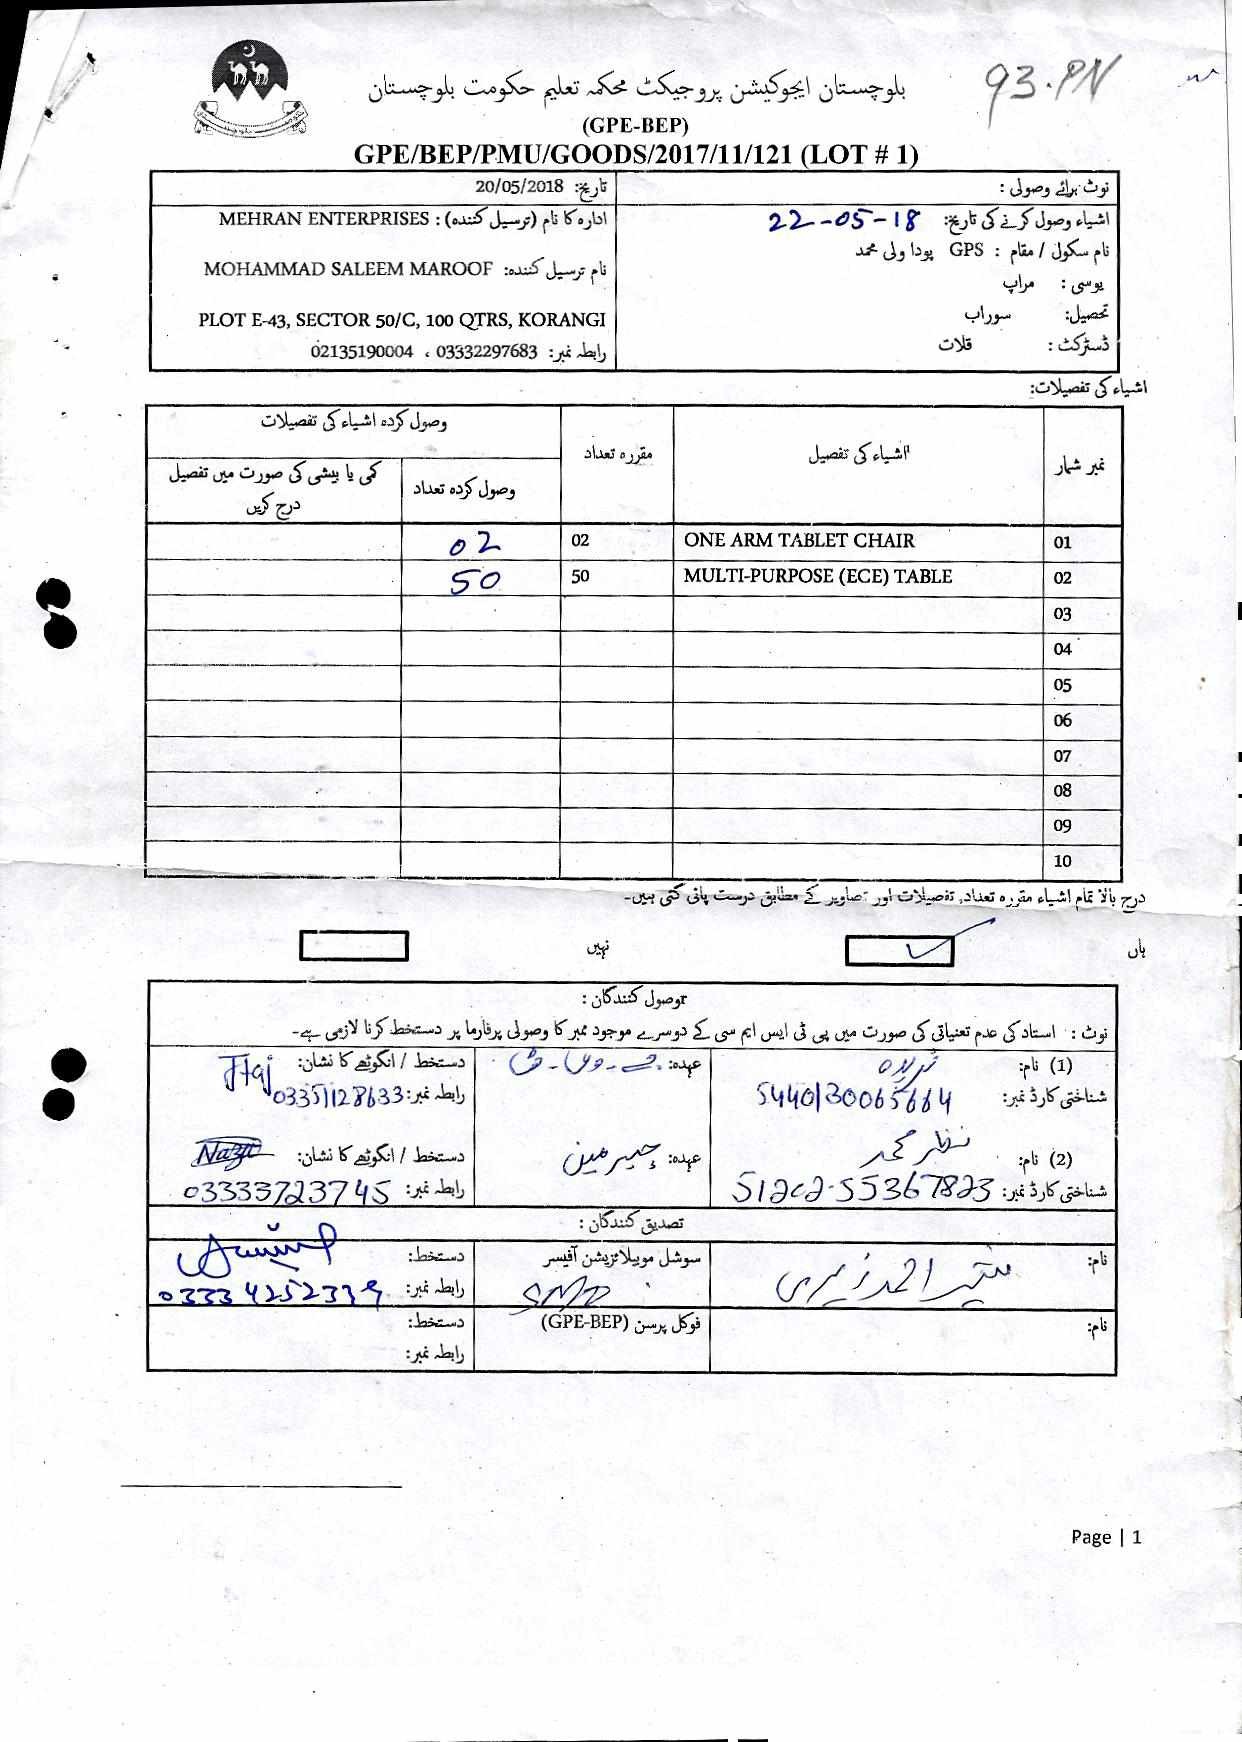 بلوچستان ایجوکیشن پروجیکٹ محکمہ تعلیم حکومت بلوچستان
93.PN
(GPE-BEP)
GPE/BEP/PMU/GOODS/2017/11/121 (LOT # 1)
نوٹ برائے وصولی :
اشیاء وصول کرنے کی تاریخ: 22-05-18
نام سکول / مقام : GPS پودا ولی محمد
یوسی : مراپ
تحصیل: سوراب
ڈسٹرکٹ : قلات
تاریخ: 20/05/2018
ادارہ کا نام (ترسیل کنندہ) : MEHRAN ENTERPRISES
نام ترسیل کنندہ: MOHAMMAD SALEEM MAROOF
PLOT E-43, SECTOR 50/C, 100 QTRS, KORANGI
رابطہ نمبر: 03332297683 ، 02135190004
اشیاء کی تفصیلات:
نمبر شمار اشیاء کی تفصیل مقررہ تعداد وصول کردہ اشیاء کی تفصیلات
وصول کردہ تعداد کمی یا بیشی کی صورت میں تفصیل درج کریں
01 ONE ARM TABLET CHAIR 02 02
02 MULTI-PURPOSE (ECE) TABLE 50 50
03
04
05
06
07
08
09
10
درج بالا تمام اشیاء مقررہ تعداد، تفصیلات اور تصاویر کے مطابق درست پائی گئی ہیں۔
ہاں ✓ نہیں
وصول کنندگان :
نوٹ : استاد کی عدم تعیناتی کی صورت میں پی ٹی ایس ایم سی کے دوسرے موجود ممبر کا وصولی پرفارما پر دستخط کرنا لازمی ہے۔
(1) نام: عہدہ: دستخط / انگوٹھے کا نشان:
شناختی کارڈ نمبر: 5440130065664 رابطہ نمبر: 03351128633
(2) نام: نظر محمد عہدہ: چیرمین دستخط / انگوٹھے کا نشان: Nazar
شناختی کارڈ نمبر: 51202-55367823 رابطہ نمبر: 03333723745
تصدیق کنندگان :
نام: سوشل موبیلائزیشن آفیسر دستخط:
SMO رابطہ نمبر: 03334252339
نام: فوکل پرسن (GPE-BEP) دستخط:
رابطہ نمبر:
Page | 1